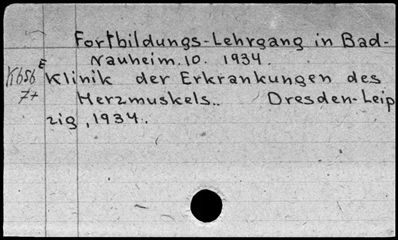 Fortbildungs-Lehrgang in Bad-
Nauheim.10. 1934.
K656 E Klinik der Erkrankungen des
7+ Herzmuskels.. Dresden-Leip
zig, 1934.